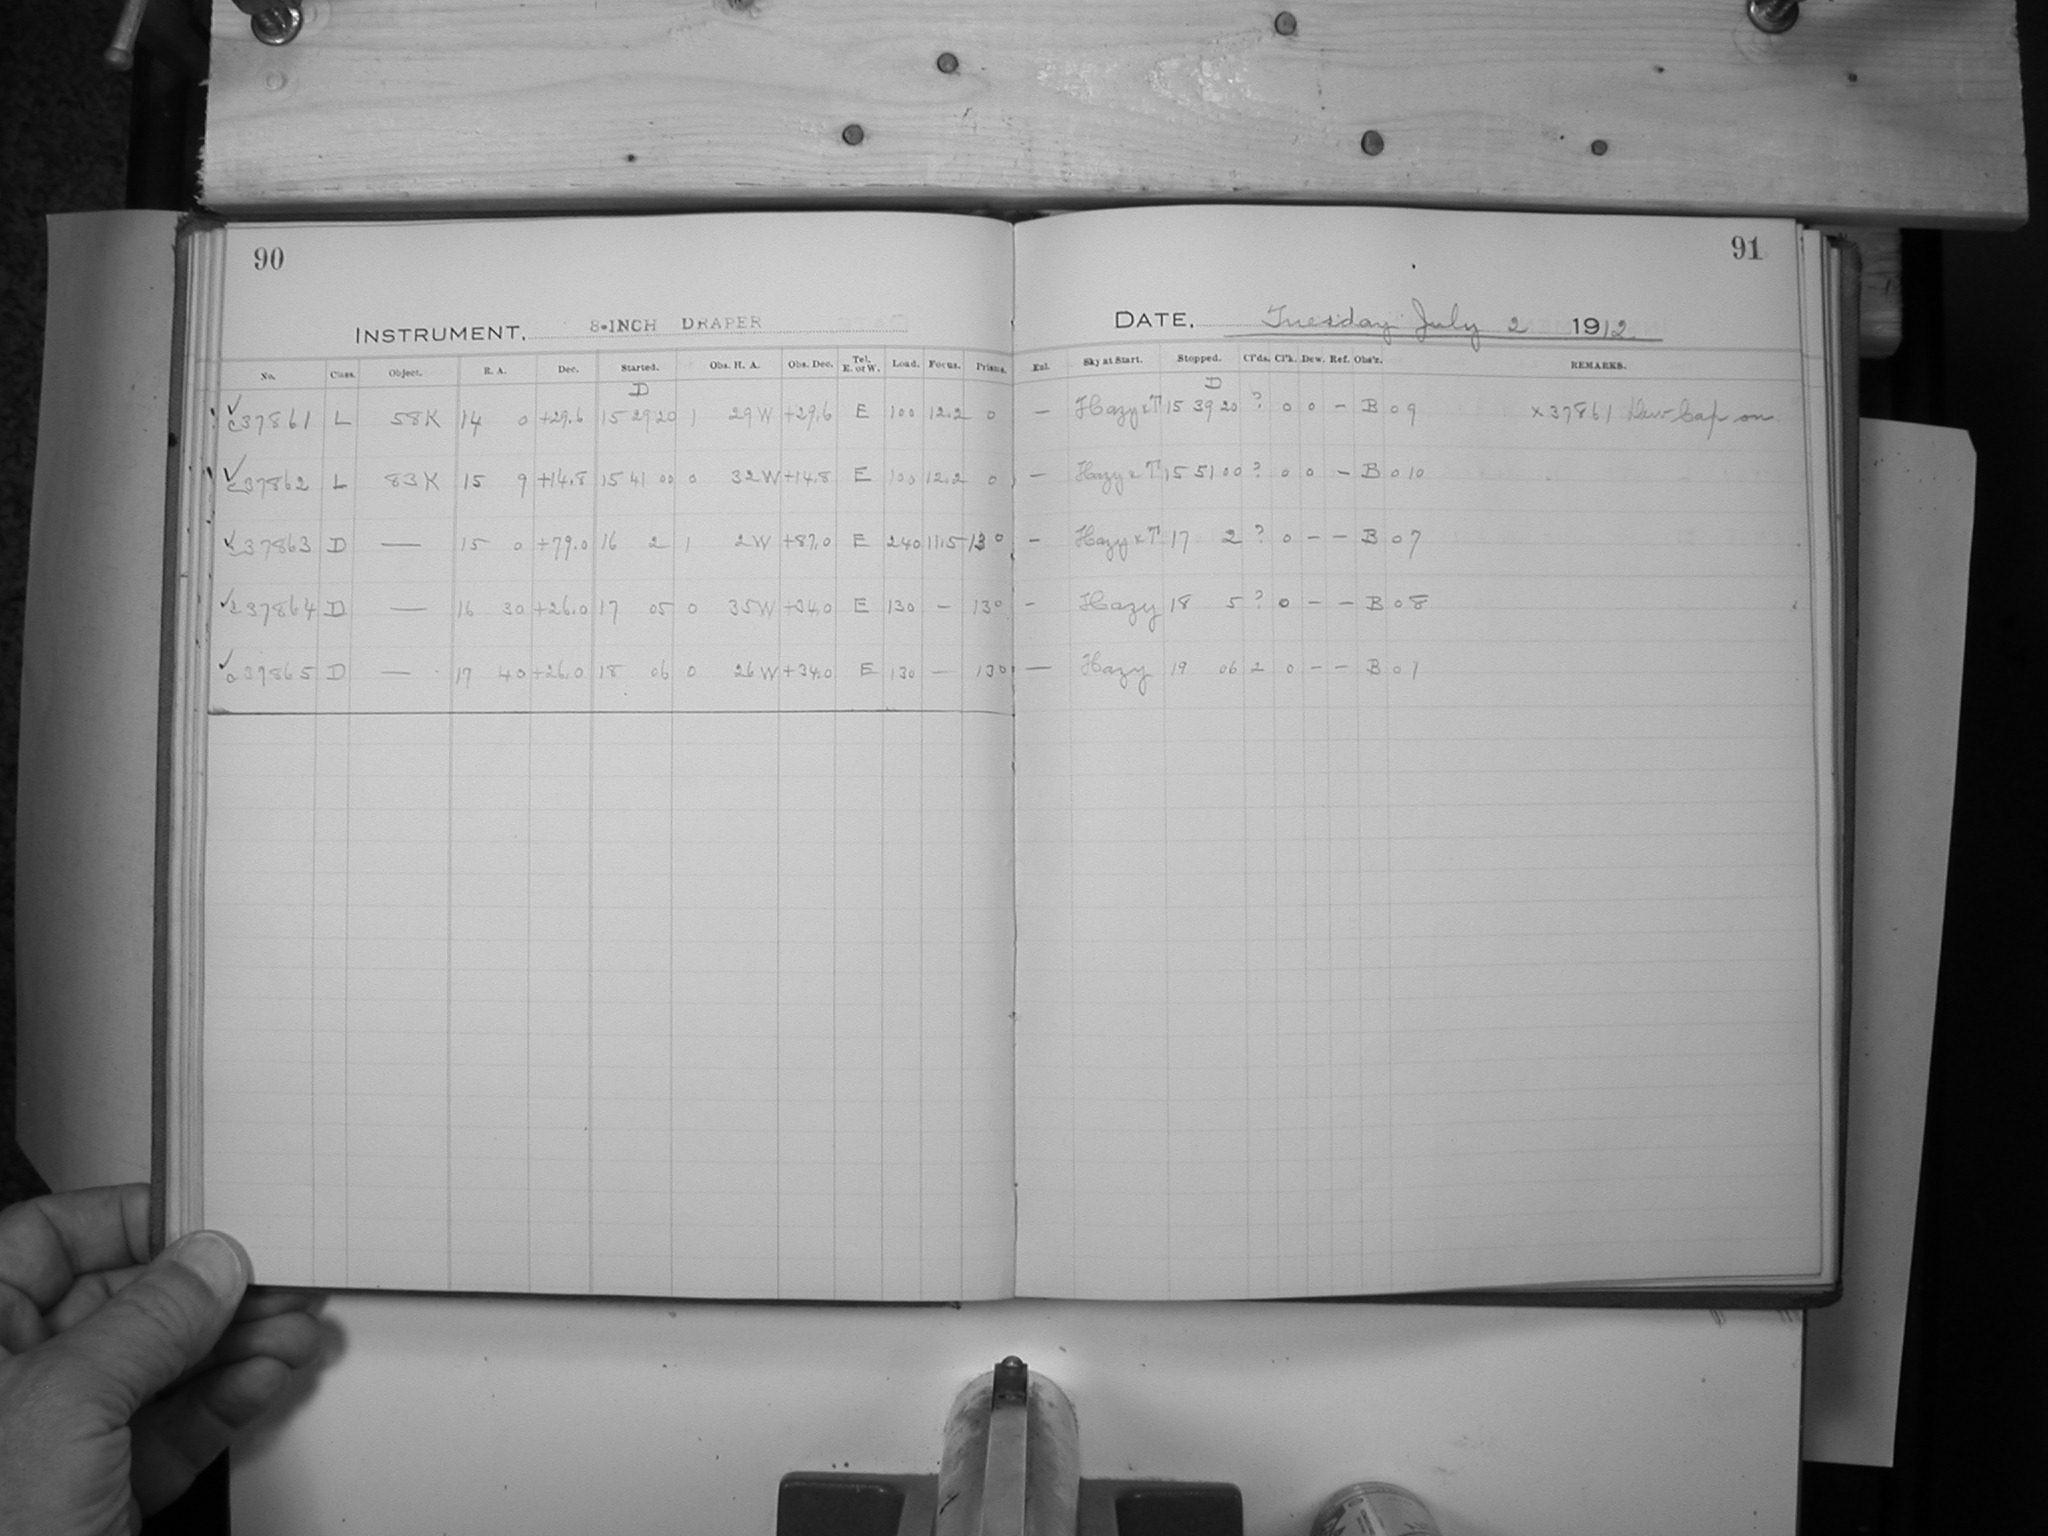 90
91
INSTRUMENT, 8-INCH DRAPER
DATE, Tuesday July 2 1912.
No. Class. Object. R. A. Dec. Started. Obs. H. A. Obs. Dec. Tel. E. or W. Load. Focus. Prisms. Exl. Sky at Start. Stopped. Cl'ds. Cl'k. Dew. Ref. Obs'r. REMARKS.
D D
c37861 L 58K 14 0 +29.6 15 29 20 1 29 W +29.6 E 100 12.2 0 — Hazy & T 15 39 20 ? 0 0 - B 0 9 x37861 Dew Cap on
c37862 L 83K 15 9 +14.8 15 41 00 0 32 W +14.8 E 100 12.2 0 — Hazy & T 15 51 00 ? 0 0 - B 0 10
37863 D — 15 0 +79.0 16 2 1 2 W +87.0 E 240 11.5 130 - Hazy & T 17 2 ? 0 - - B 0 7
37864 D — 16 30 +26.0 17 05 0 35 W +34.0 E 130 - 130 - Hazy 18 5 ? 0 - - B 0 8
37865 D — 17 40 +26.0 18 06 0 26 W +34.0 E 130 — 130 — Hazy 19 06 2 0 - - B 0 7